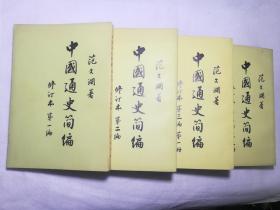 范文澜著
中國通史简编
修订本 第一编
范文澜著
中國通史简编
修订本 第二编
范文澜著
中國通史简编
修订本 第三编 第一册
范文澜著
中國通史简编